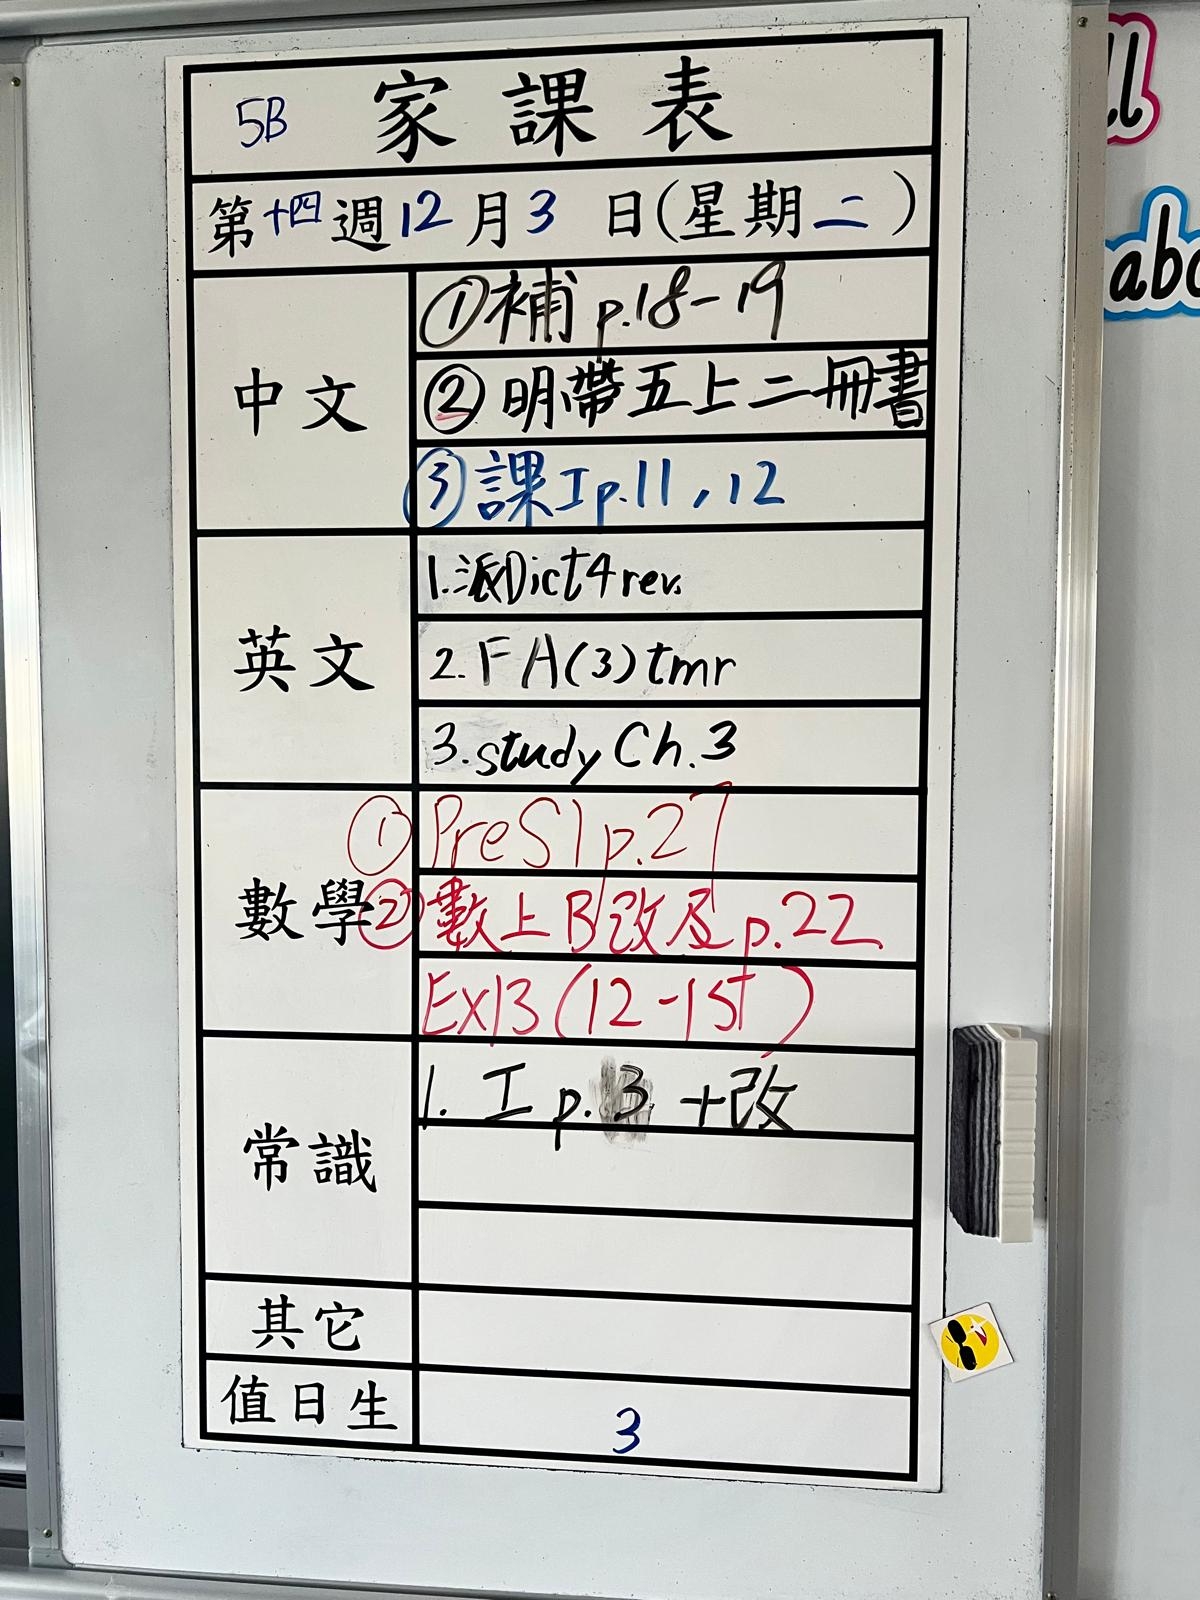 5B 家課表
第十四週12月3日(星期二)
中文
①補p.18-19
②明帶五上二冊書
③課工p.11,12
英文
1.派Dict4rev.
2.FA(3)tmr
3.study Ch.3
數學
①PreS1p.27
②數上B改及p.22
Ex13(12-1st)
常識
1. 工p.3 +改
其它
值日生
3
abc